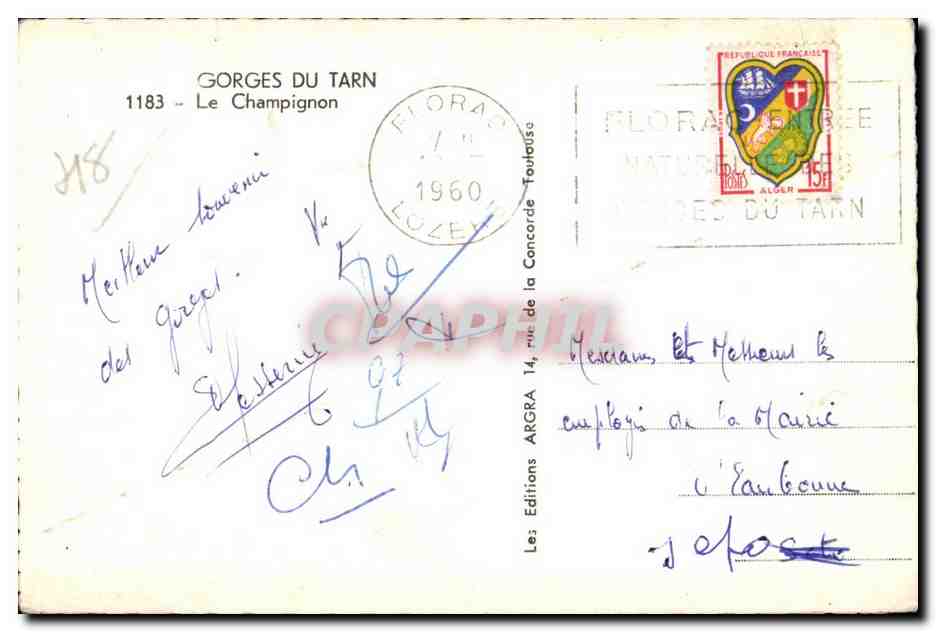 GORGES DU TARN
1183 - Le Champignon
REPUBLIQUE FRANÇAISE
POSTES 15F
ALGER
FLORAC
1960
LOZERE
FLORAC ENTREE
NATURELLE DES
GORGES DU TARN
418
Meilleur souvenir
des gorges.
Vu
CPAPHIL
Les Editions ARGRA 14, rue de la Concorde Toulouse
Mesdames et Messieurs les
employés de la Mairie
d'Eaubonne